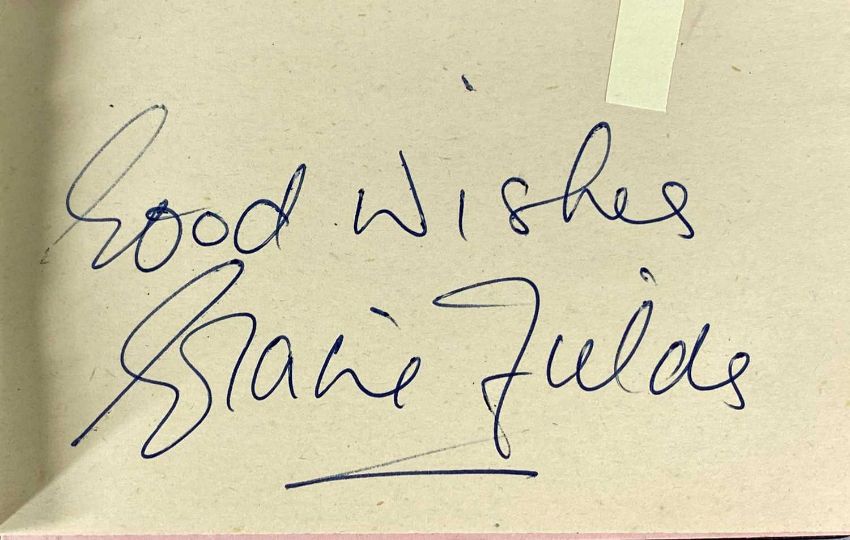 Good Wishes
Gracie Fields